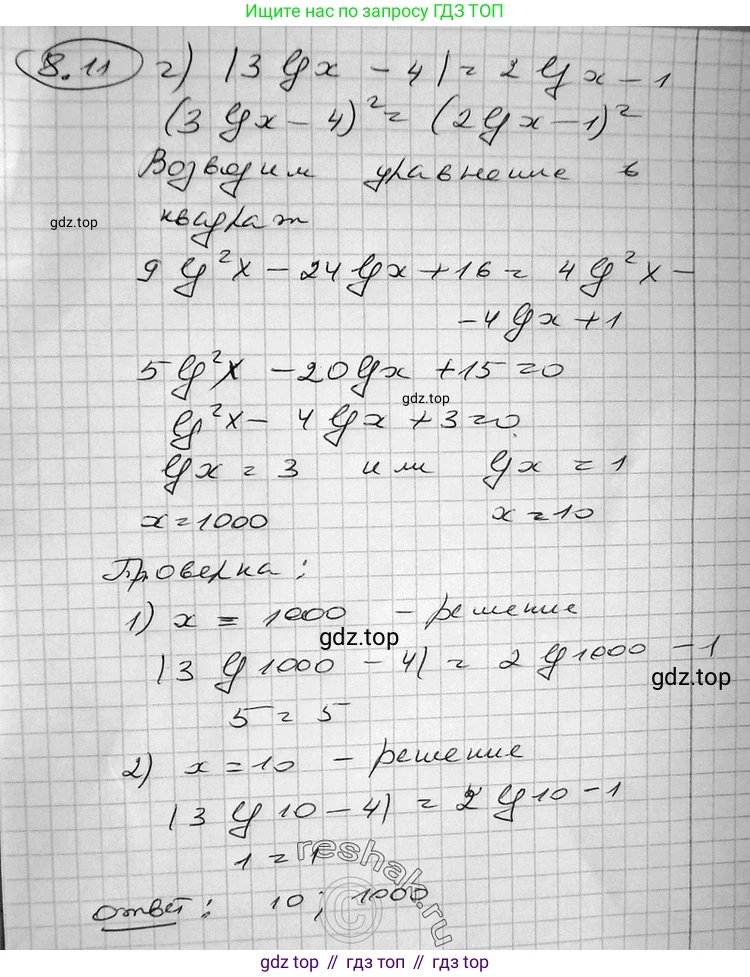 Ищите нас по запросу ГДЗ ТОП
8.11 г) |3 lg x - 4| = 2 lg x - 1
(3 lg x - 4)² = (2 lg x - 1)²
Возводим уравнение в
gdz.top
квадрат
9 lg² x - 24 lg x + 16 = 4 lg² x -
- 4 lg x + 1
5 lg² x - 20 lg x + 15 = 0
gdz.top
lg² x - 4 lg x + 3 = 0
lg x = 3 или lg x = 1
x = 1000 x = 10
Проверка:
1) x = 1000 - решение
gdz.top
|3 lg 1000 - 4| = 2 lg 1000 - 1
gdz.top
5 = 5
2) x = 10 - решение
|3 lg 10 - 4| = 2 lg 10 - 1
1 = 1
reshak.ru
©
ответ: 10; 1000
gdz.top // гдз.топ // gdz.top